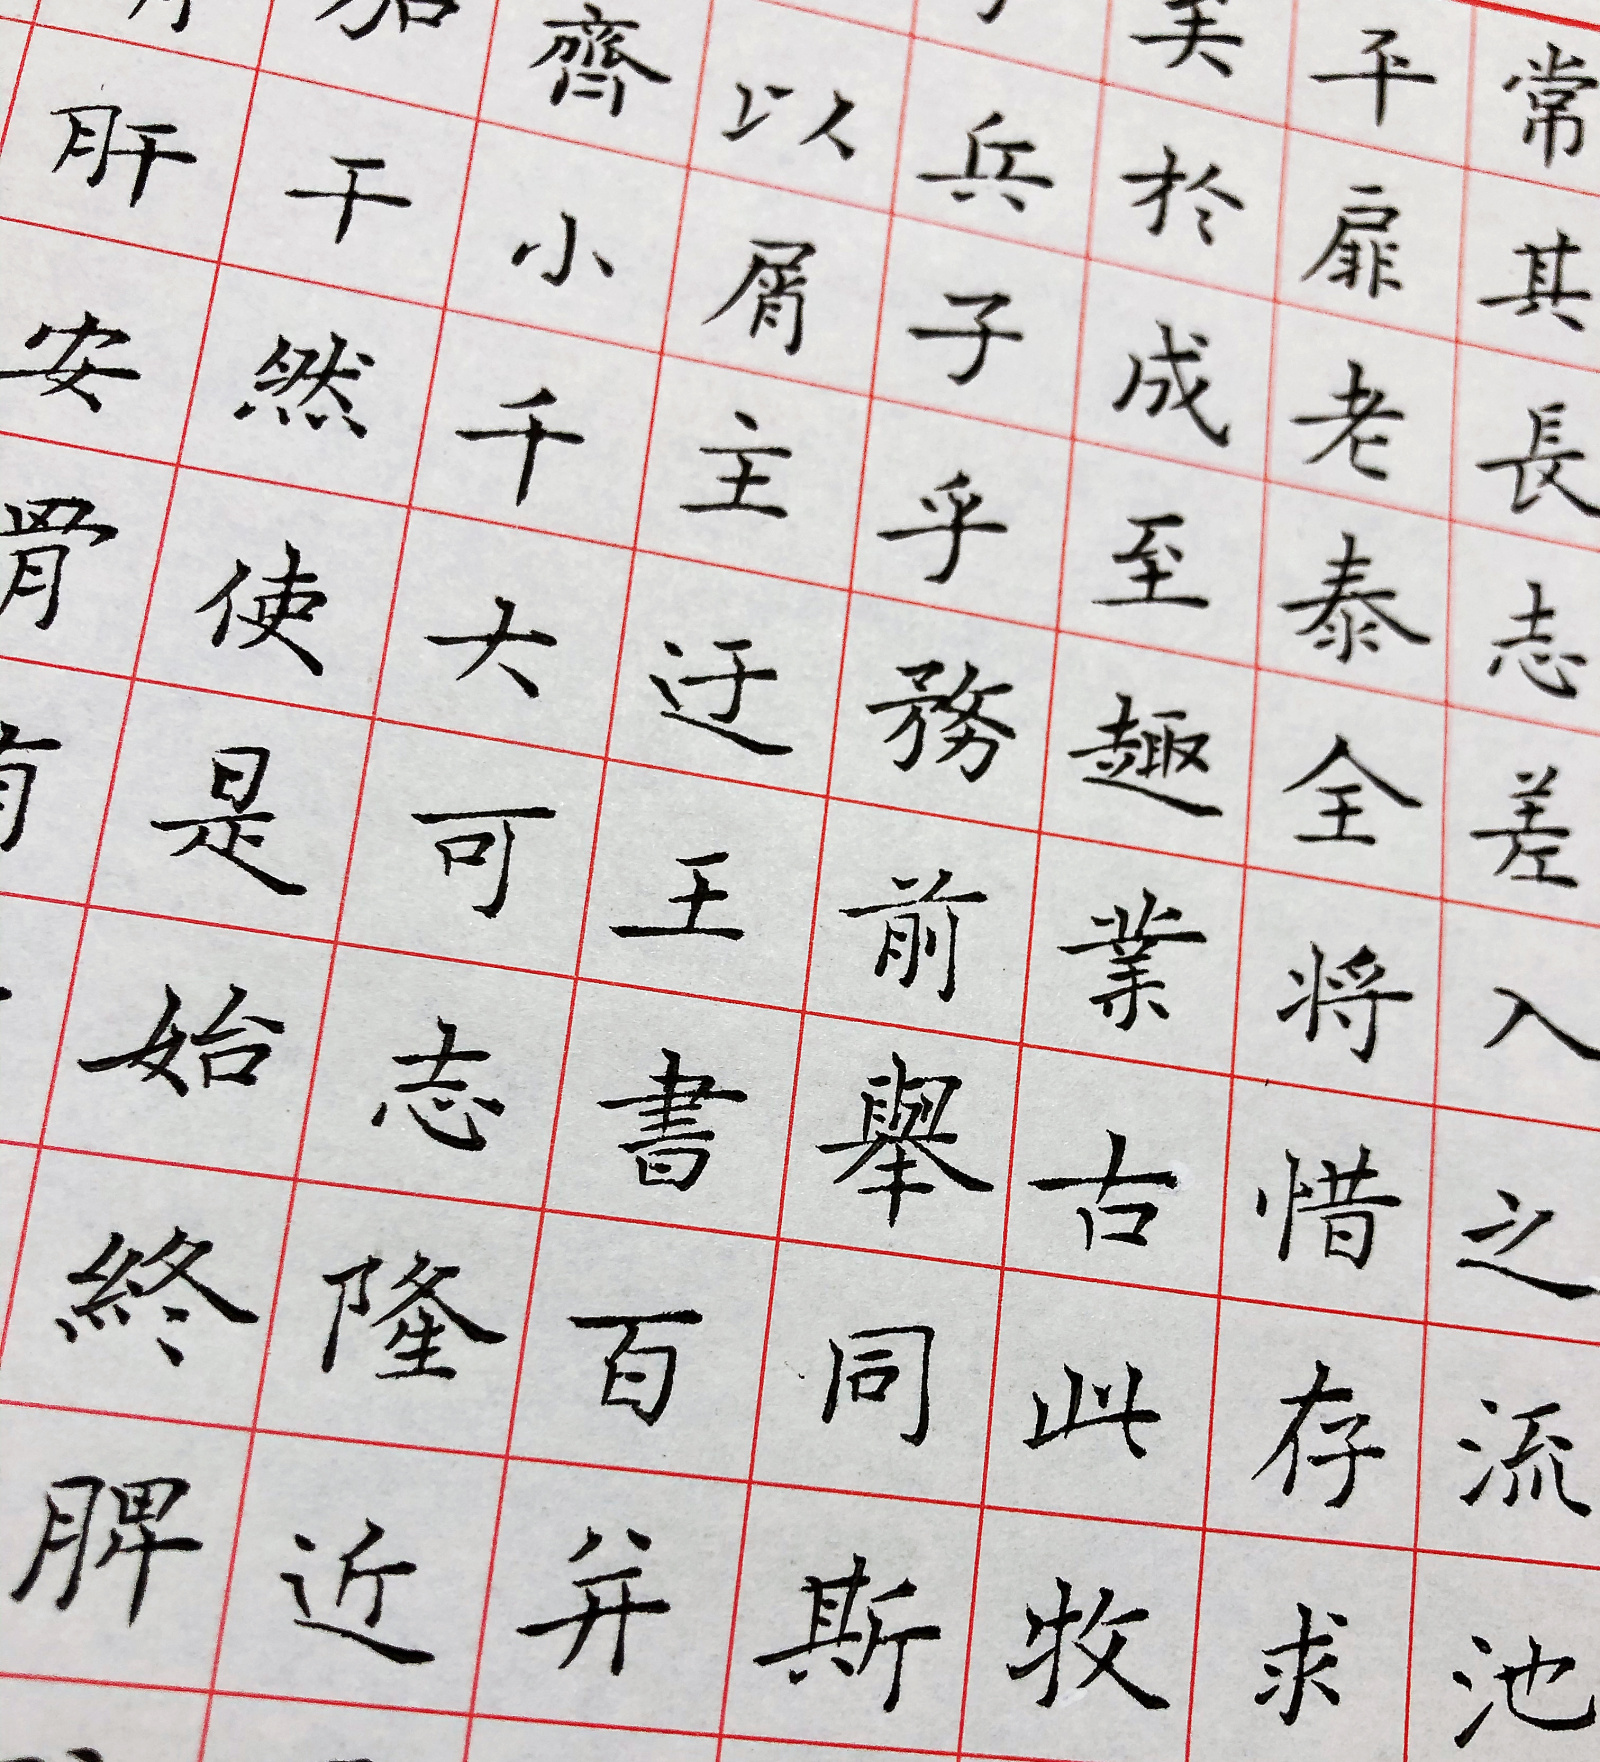 常其長志差入之流池
平扉老泰全将惜存求
於成至趣業古此牧
兵子乎務前舉同斯
以屑主迂王書百并
齊小千大可志隆近
干然使是始終脾
肝安骨